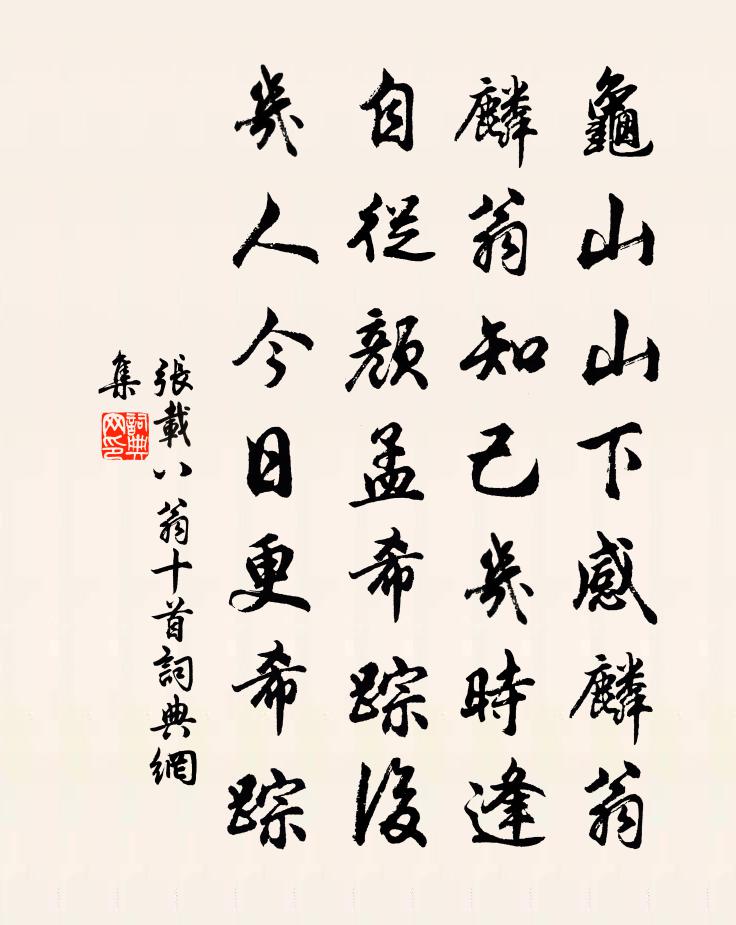 龜山山下感麟翁
麟翁知己幾時逢
自從顏孟希踪後
幾人今日更希踪
張載八翁十首詞典網
集
詞典網印